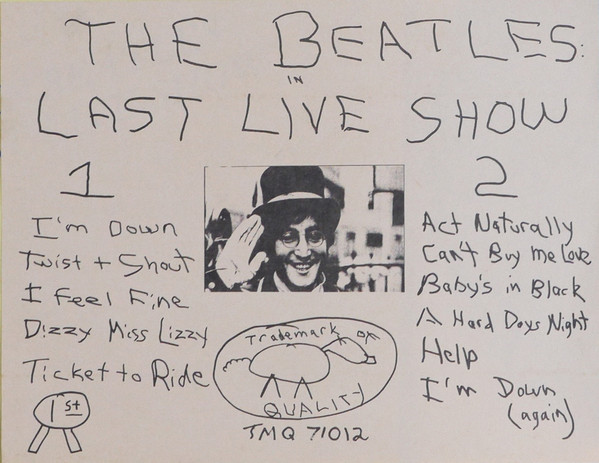 THE BEATLES:
IN
LAST LIVE SHOW
1
I'm Down
Twist + Shout
I Feel Fine
Dizzy Miss Lizzy
Ticket to Ride
1st
Trademark OF
QUALITY
TMQ 71012
2
Act Naturally
Can't Buy me Love
Baby's in Black
A Hard Days Night
Help
I'm Down
(again)